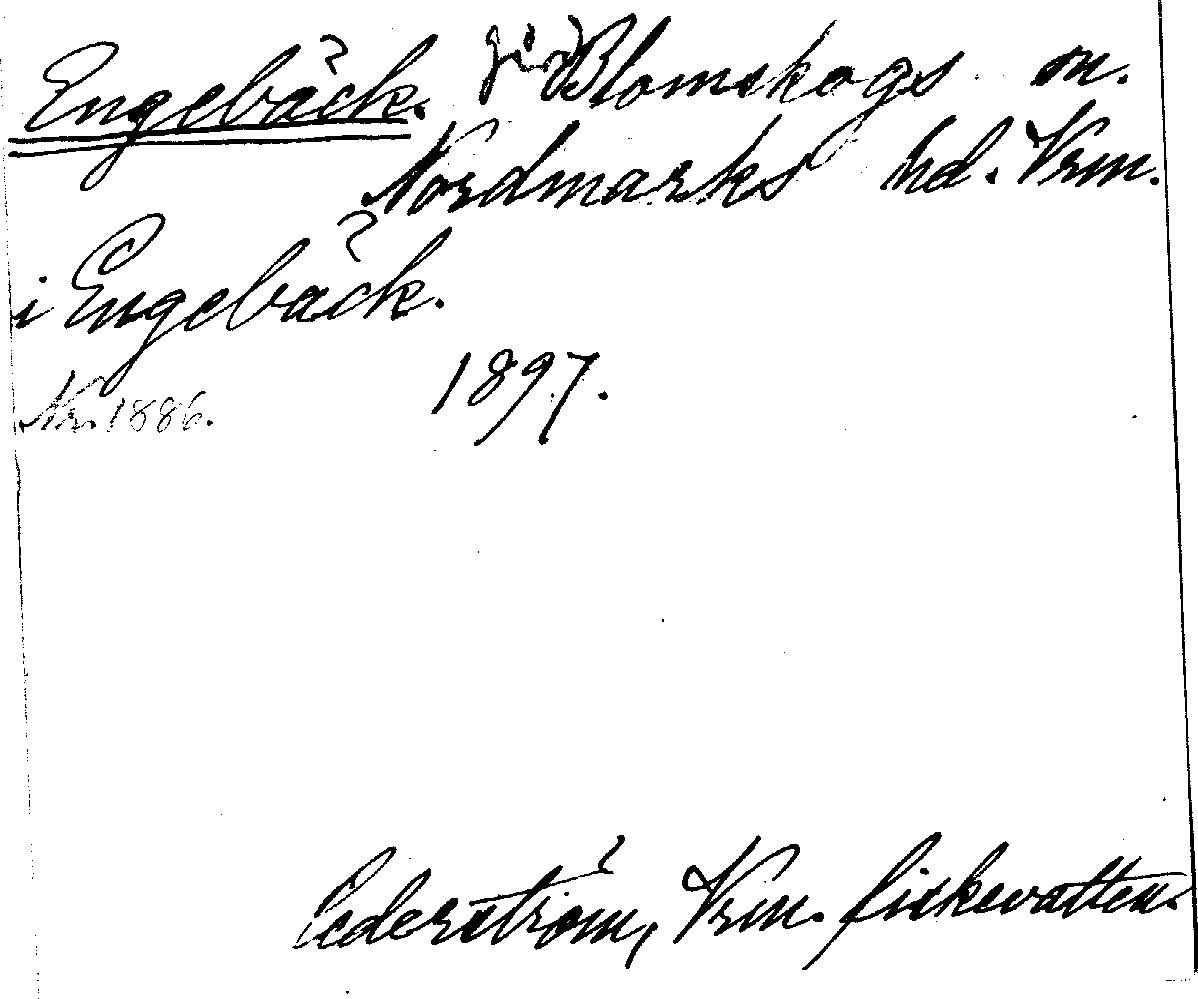 Engebäck. Blomskogs sn.
Nordmarks hd. Vrm.
i Engebäck.
1897.
Nr. 1886.
Cederström, Vrm. fiskevatten.